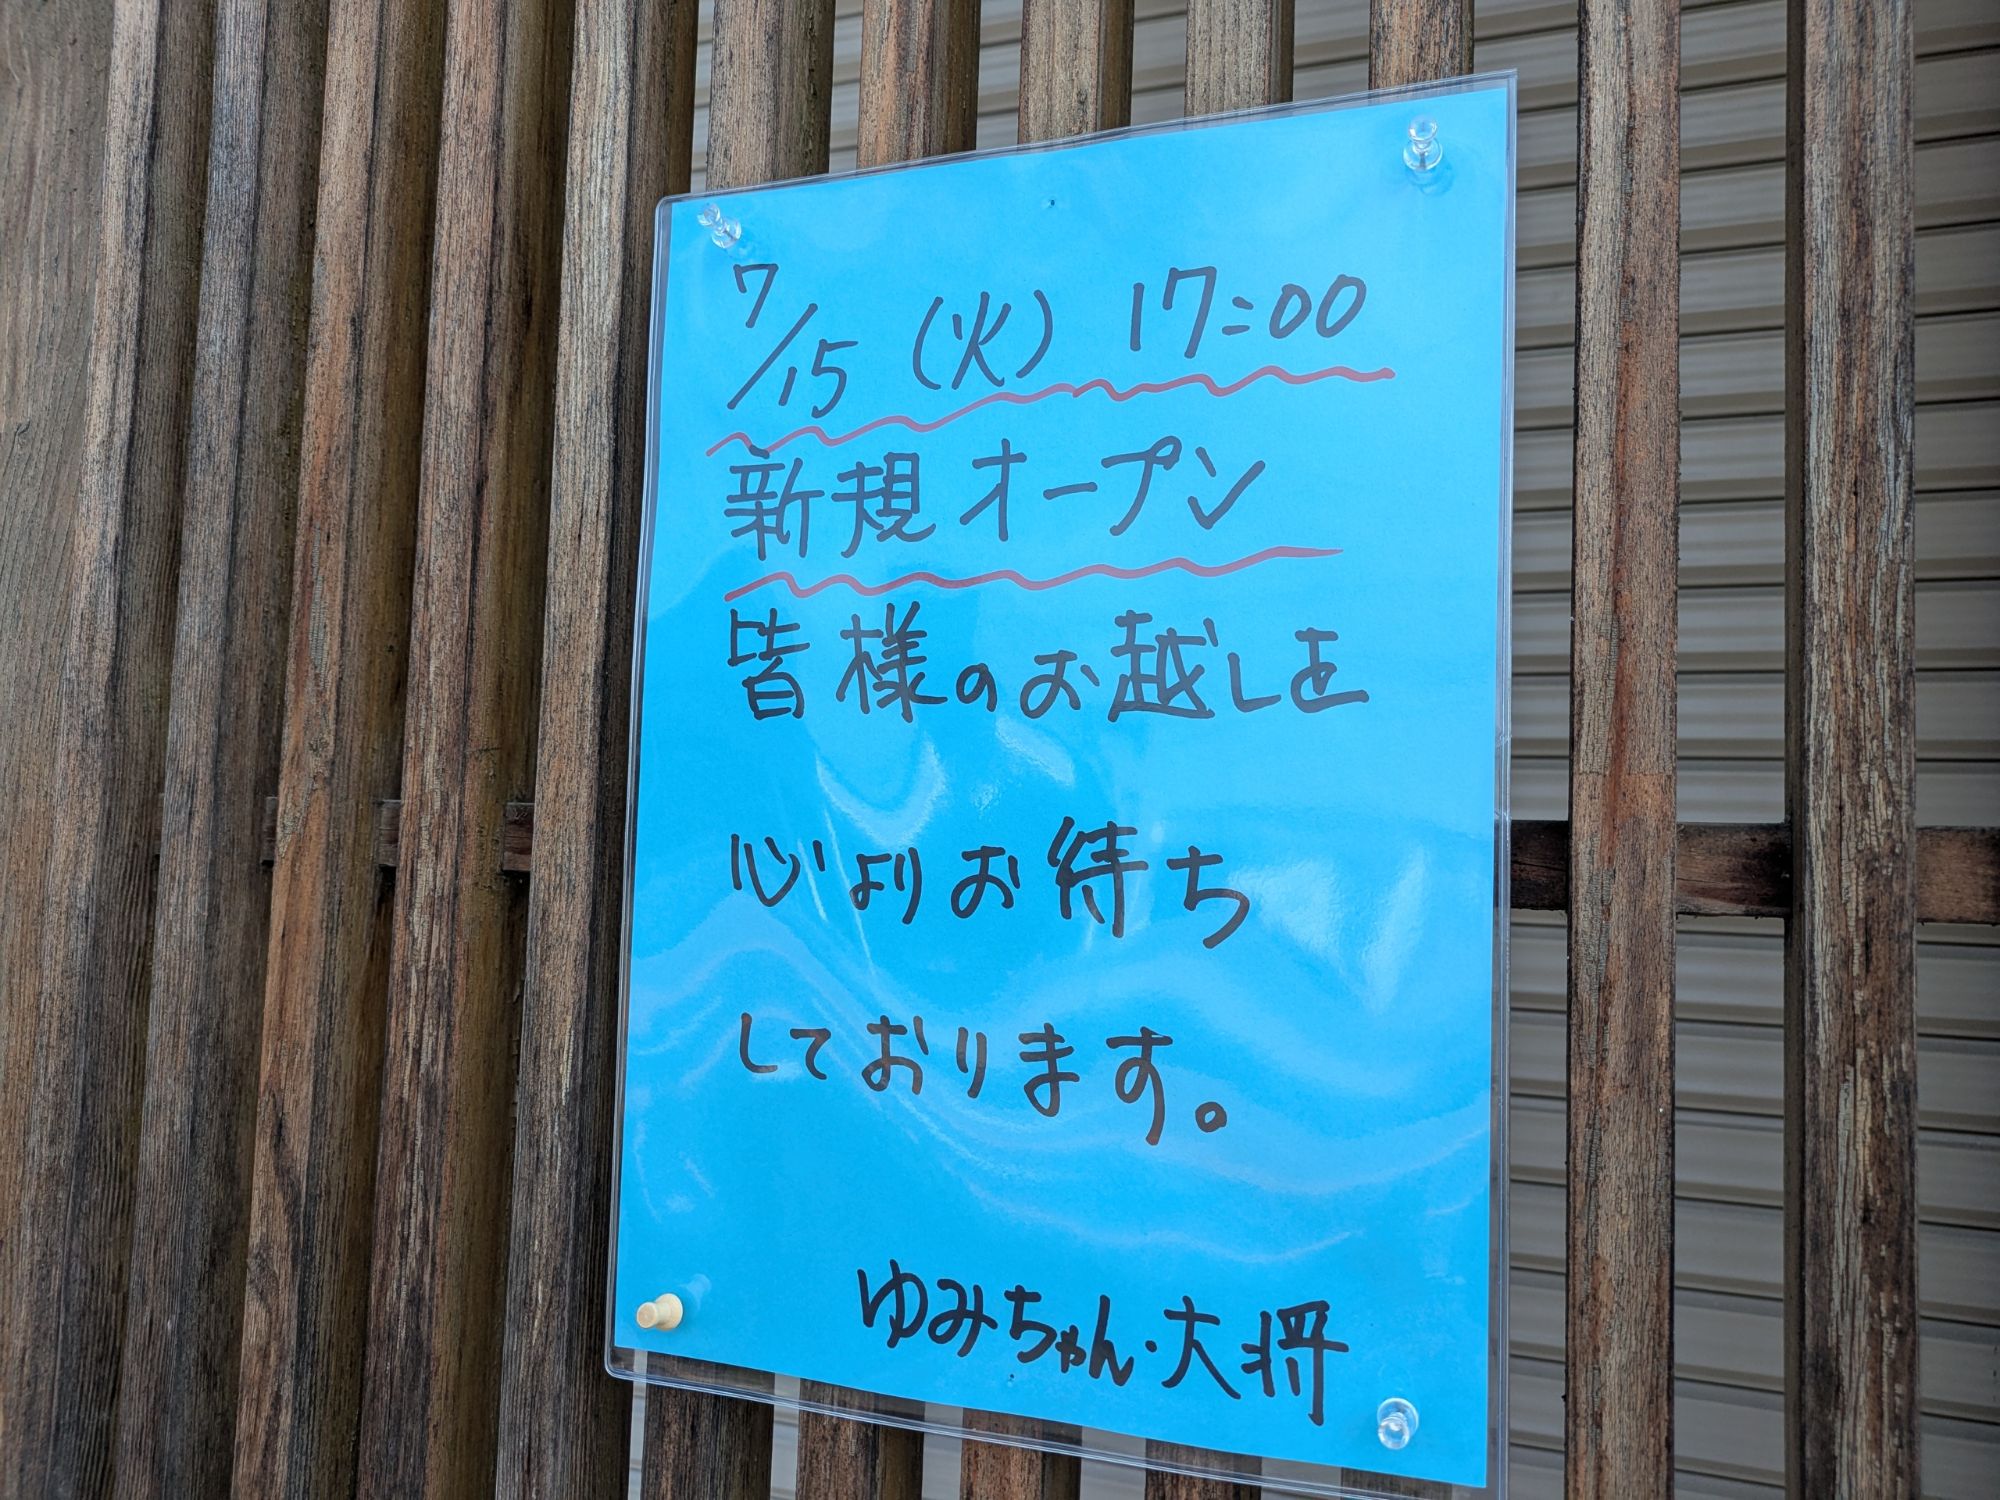 7/15(火) 17:00
新規オープン
皆様のお越しを
心よりお待ち
しております。
ゆみちゃん・大将